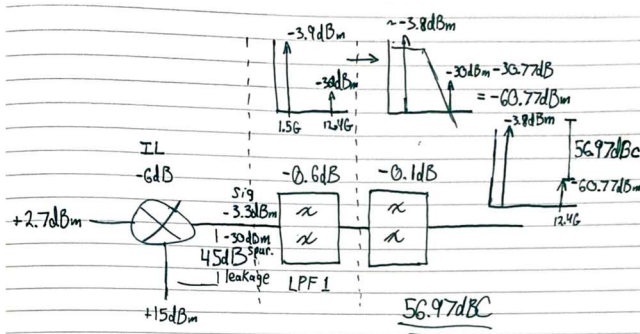 -3.9dBm
-30dBm
1.5G
12.4G
~-3.8dBm
-30dBm-30.77dB
= -60.77dBm
-3.8dBm
56.97dBc
-60.77dBm
12.4G
IL
-6dB
+2.7dBm
+15dBm
Sig
-3.3dBm
-30dBm
45dB spur.
leakage
-0.6dB
LPF 1
-0.1dB
56.97dBC